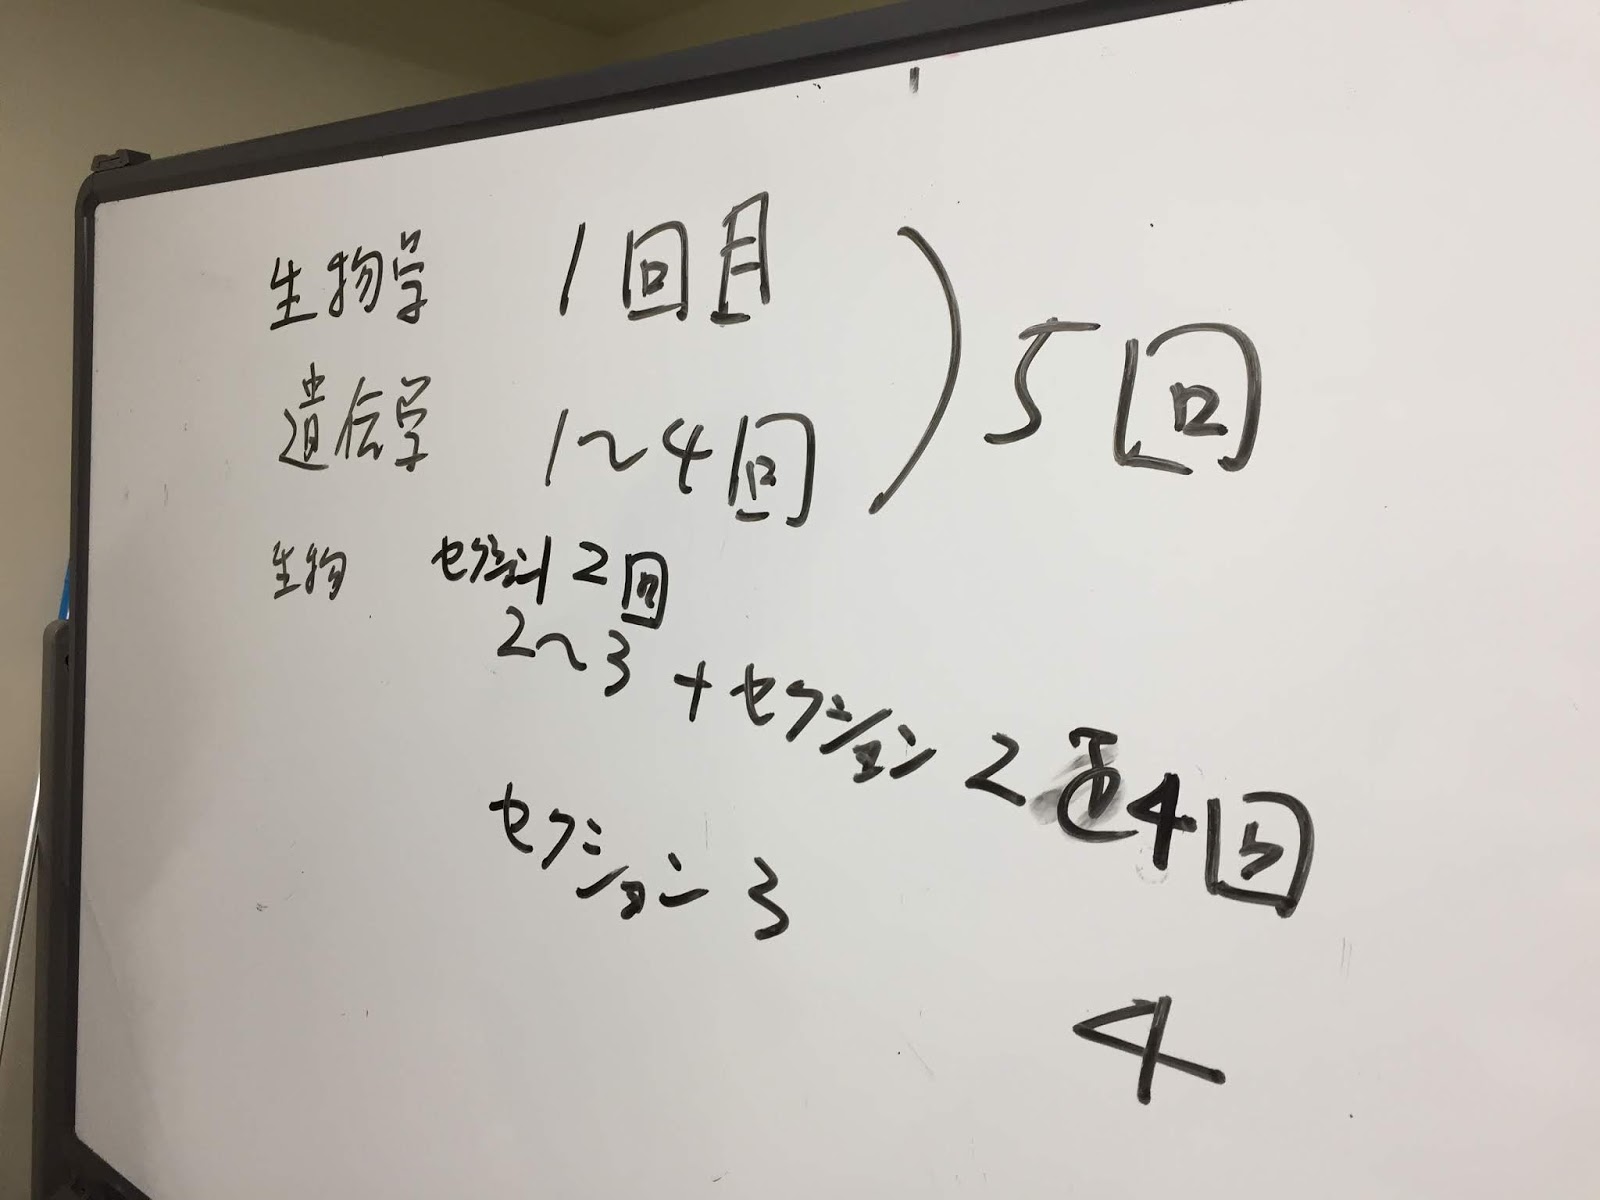 生物学 1回目
遺伝学 1〜4回 ) 5回
生物 セクション1 2回
2〜3 + セクション2 4回
セクション3
4